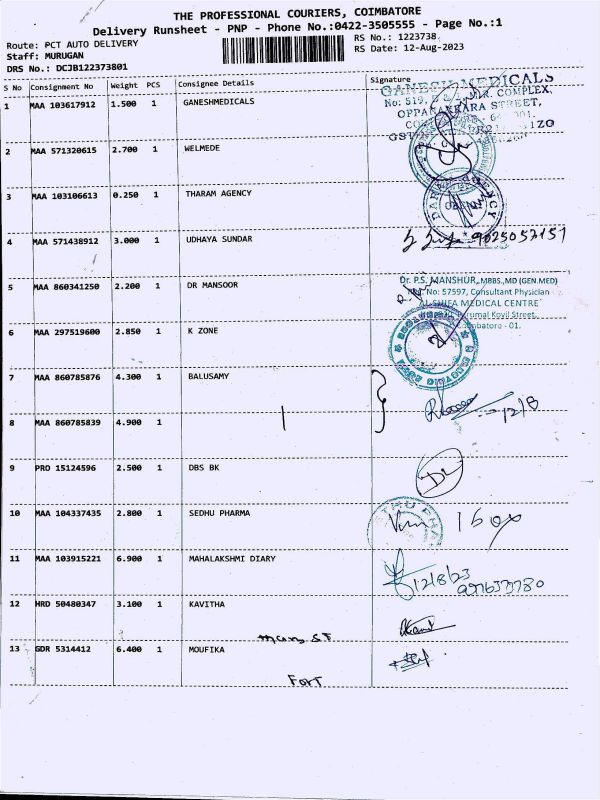 THE PROFESSIONAL COURIERS, COIMBATORE
Delivery Runsheet - PNP - Phone No.:0422-3505555 - Page No.:1
Route: PCT AUTO DELIVERY
RS No.: 1223738
Staff: MURUGAN
RS Date: 12-Aug-2023
DRS No.: DCJB122373801
S No Consignment No Weight PCS Consignee Details Signature
1 MAA 103617912 1.500 1 GANESHMEDICALS
GANESH MEDICALS
No: 519,
COMPLEX,
OPPANAKKARA STREET,
2 MAA 571320615 2.700 1 WELMEDE
3 MAA 103106613 0.250 1 THARAM AGENCY
AGENCY
4 MAA 571438912 3.000 1 UDHAYA SUNDAR
9025057151
5 MAA 860341250 2.200 1 DR MANSOOR
Dr. P.S. MANSHUR, MBBS.,MD (GEN.MED)
No: 57597, Consultant Physician
AL-SHIFA MEDICAL CENTRE
Perumal Kovil Street,
Coimbatore - 01.
6 MAA 297519600 2.850 1 K ZONE
7 MAA 860785876 4.300 1 BALUSAMY
12/8
8 MAA 860785839 4.900 1
9 PRO 15124596 2.500 1 DBS BK
10 MAA 104337435 2.800 1 SEDHU PHARMA
11 MAA 103915221 6.900 1 MAHALAKSHMI DIARY
12/8/23
12 HRD 50480347 3.100 1 KAVITHA
13 GDR 5314412 6.400 1 MOUFIKA
Fort